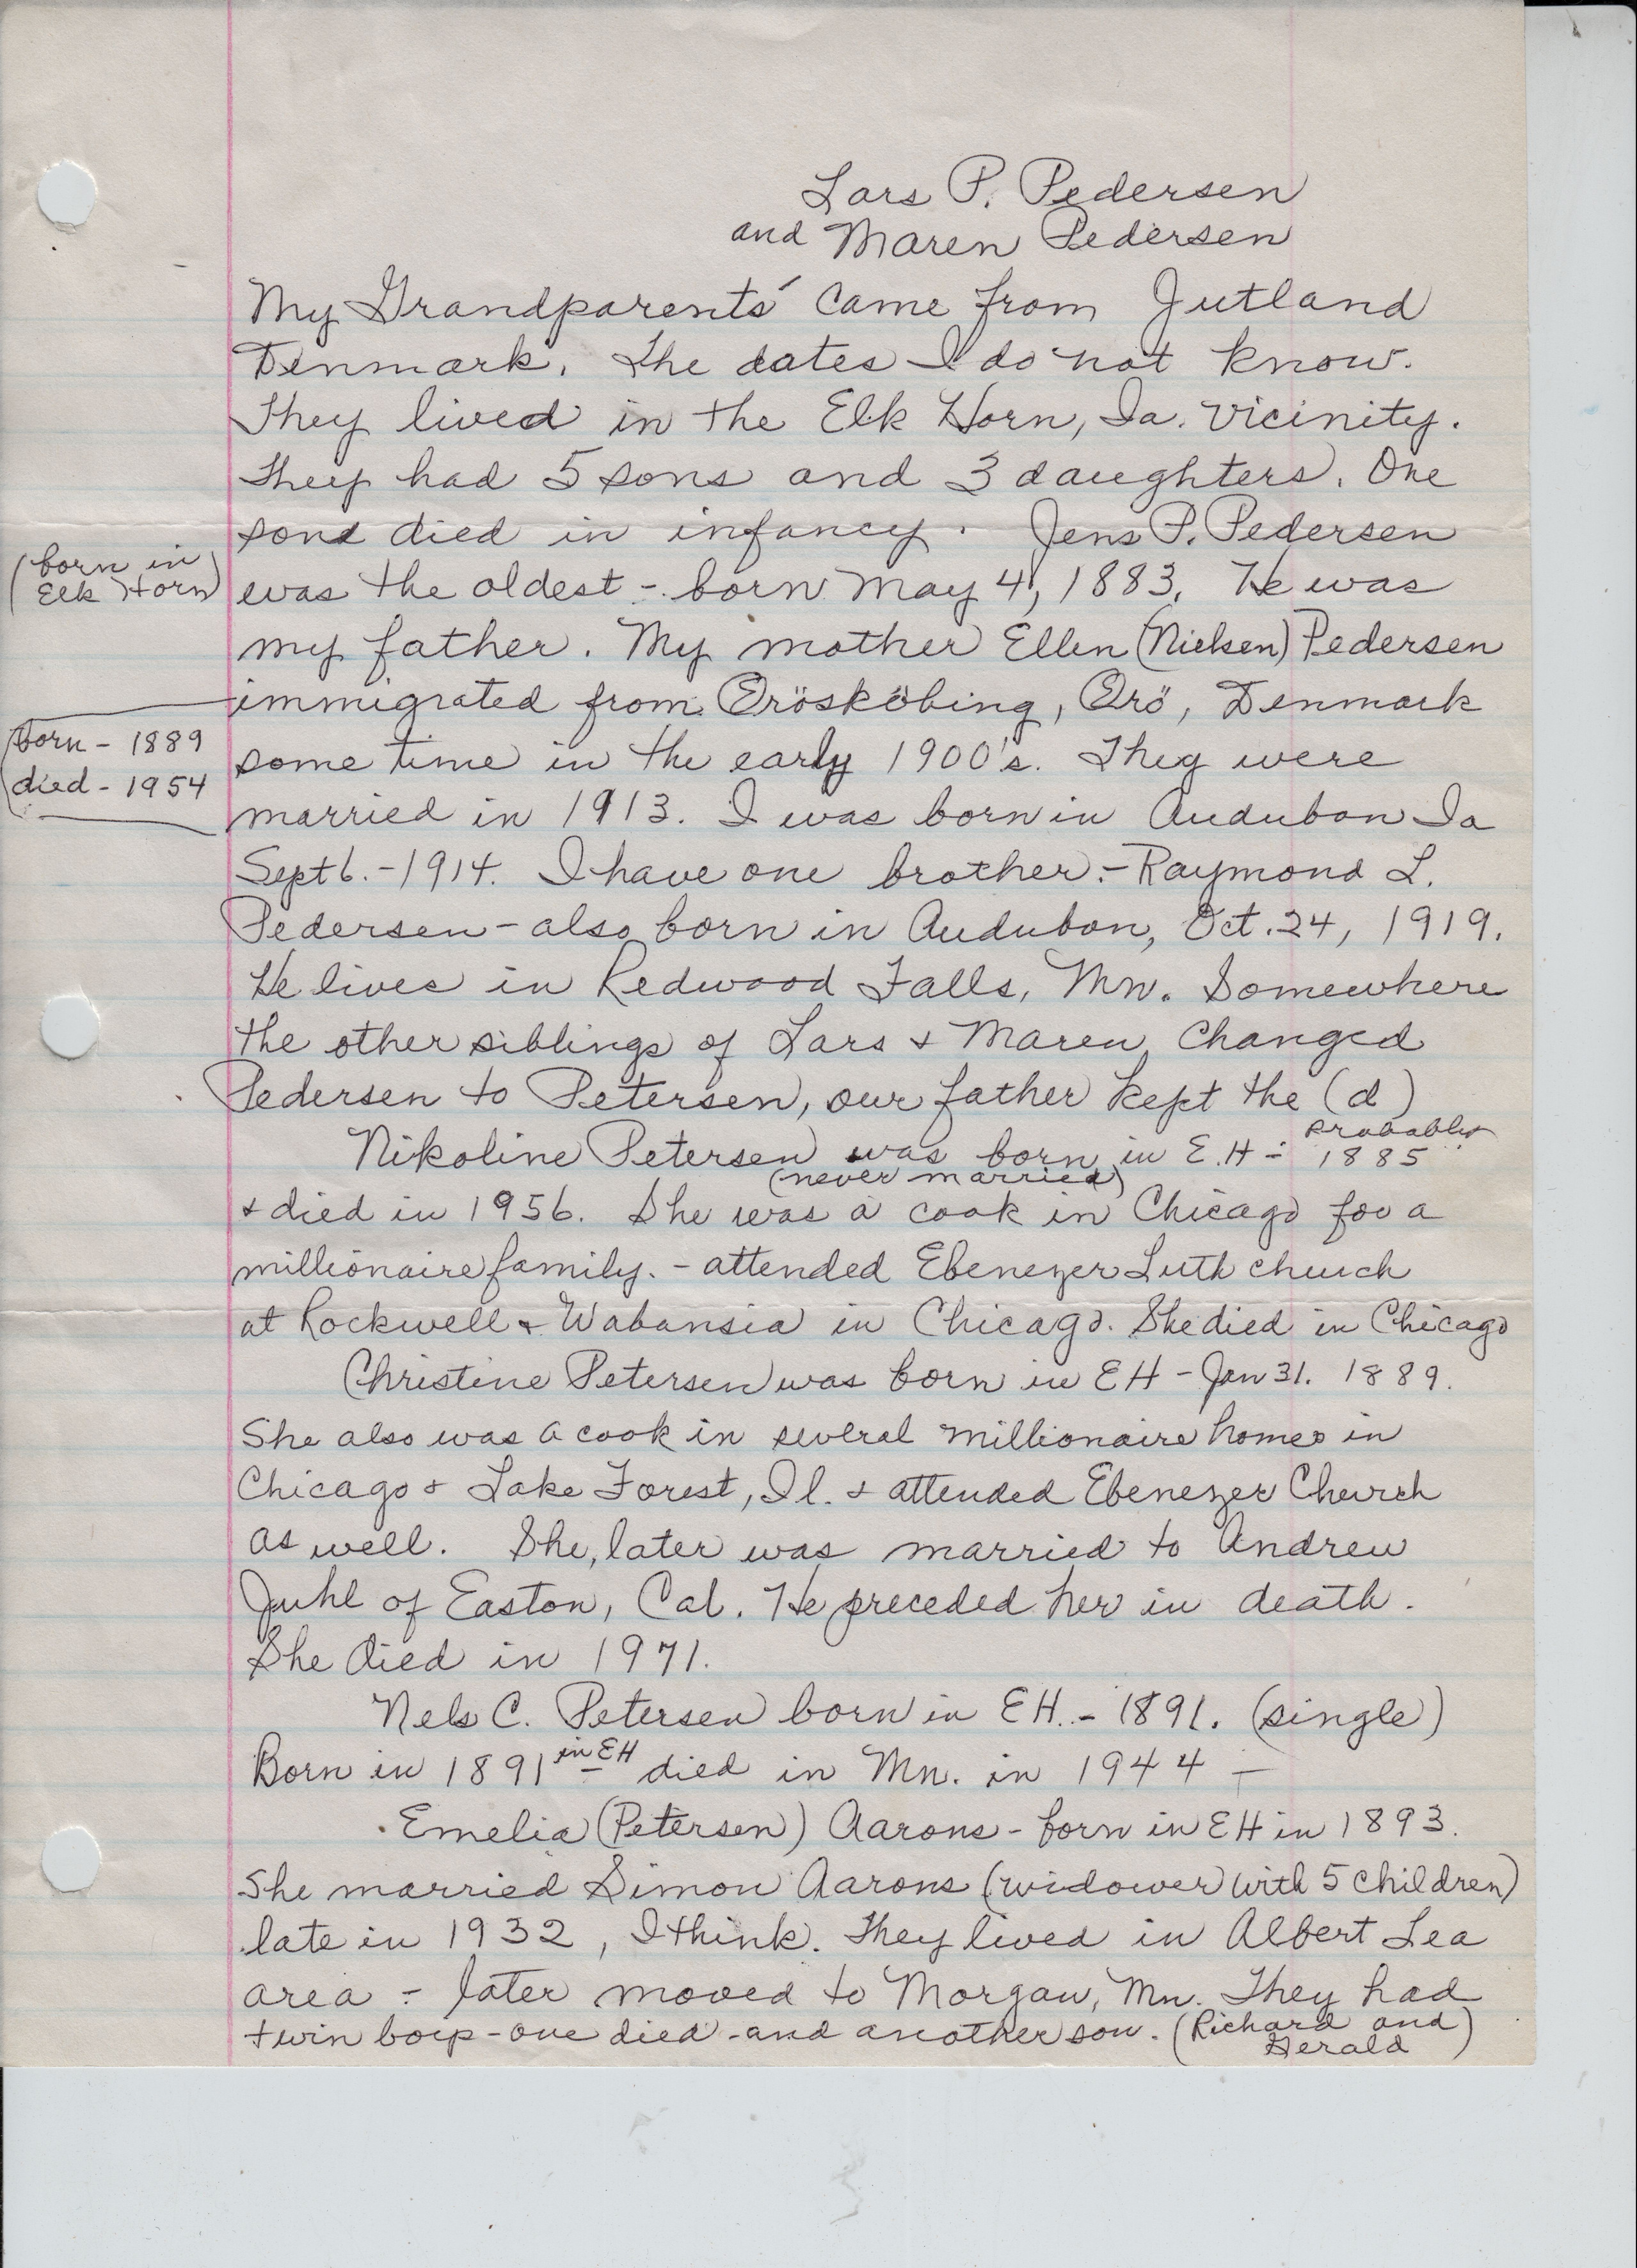 Lars P. Pedersen
and Maren Pedersen
My Grandparents' came from Jutland
Denmark. The dates I do not know.
They lived in the Elk Horn, Ia. vicinity.
They had 5 sons and 3 daughters. One
sone died in infancy. Jens P. Pedersen
(born in
Elk Horn)
was the oldest - born May 4, 1883. He was
my father. My mother Ellen (Nielsen) Pedersen
immigrated from Örösköbing, Örö, Denmark
born - 1889
died - 1954
some time in the early 1900's. They were
married in 1913. I was born in Audubon Ia
Sept 6. - 1914. I have one brother - Raymond L.
Pedersen - also born in Audubon, Oct. 24, 1919.
He lives in Redwood Falls, Mn. Somewhere
the other siblings of Lars + Maren, changed
Pedersen to Petersen, our father kept the (d)
Nikoline Petersen was born in E.H - probably 1885
(never married)
+ died in 1956. She was a cook in Chicago for a
millionaire family. - attended Ebenezer Luth church
at Rockwell + Wabansia in Chicago. She died in Chicago
Christine Petersen was born in EH - Jan 31. 1889.
She also was a cook in several millionaire homes in
Chicago + Lake Forest, Il. + attended Ebenezer Church
as well. She, later was married to Andrew
Juhl of Easton, Cal. He preceded her in death.
She died in 1971.
Nels C. Petersen born in EH. - 1891. (single)
Born in 1891 in EH died in Mn. in 1944 -
Emelia (Petersen) Aarons - born in EH in 1893.
She married Simon Aarons (widower with 5 children)
late in 1932, I think. They lived in Albert Lea
area - later moved to Morgan, Mn. They had
twin boys - one died - and another son. (Richard and
Gerald)